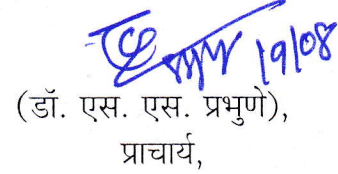 19/08
(डॉ. एस. एस. प्रभुणे),
प्राचार्य,